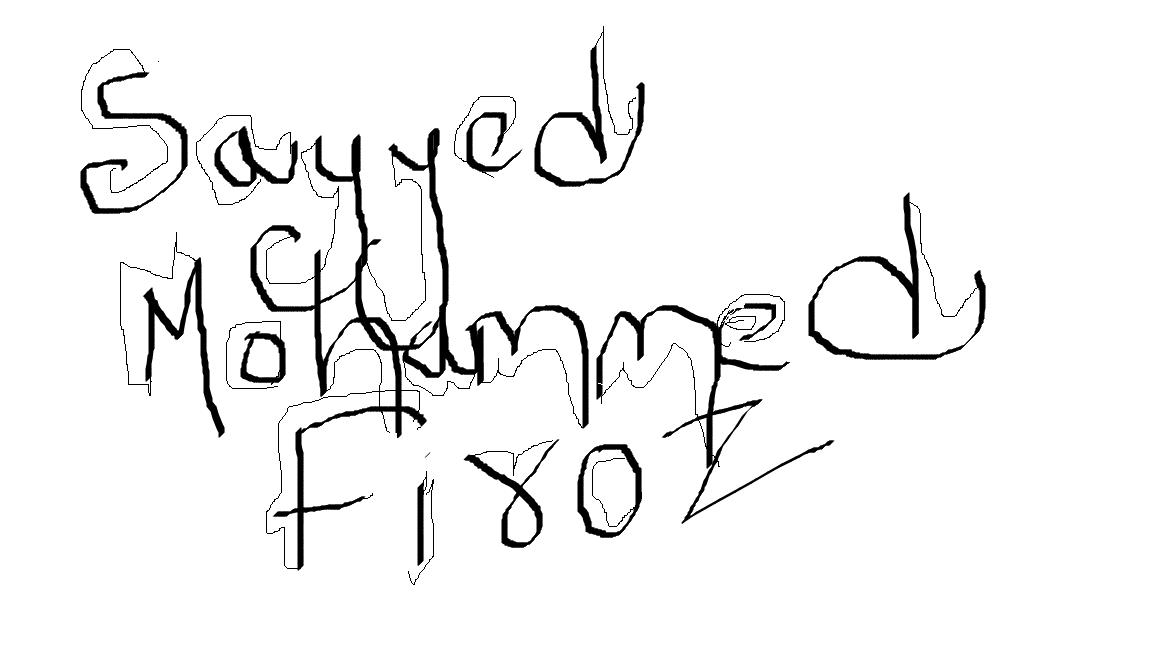 Sayyed
Mohammed
Firoz